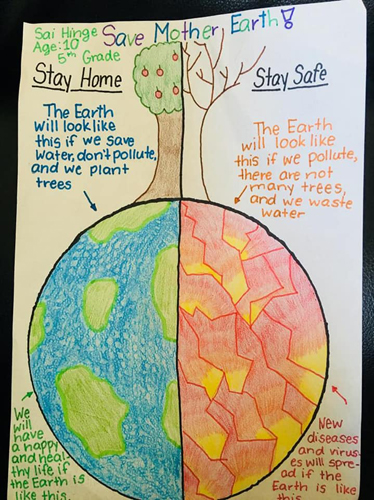 Sai Hinge
Age:10
5th Grade
Save Mother Earth!
Stay Home
Stay Safe
The Earth
will look like
this if we save
water, don't pollute,
and we plant
trees
The Earth
will look like
this if we pollute,
there are not
many trees,
and we waste
water
We
will
have
a happy
and heal-
thy life if
the Earth is
like this.
New
diseases
and virus-
es will spre-
ad if the
Earth is like
this.